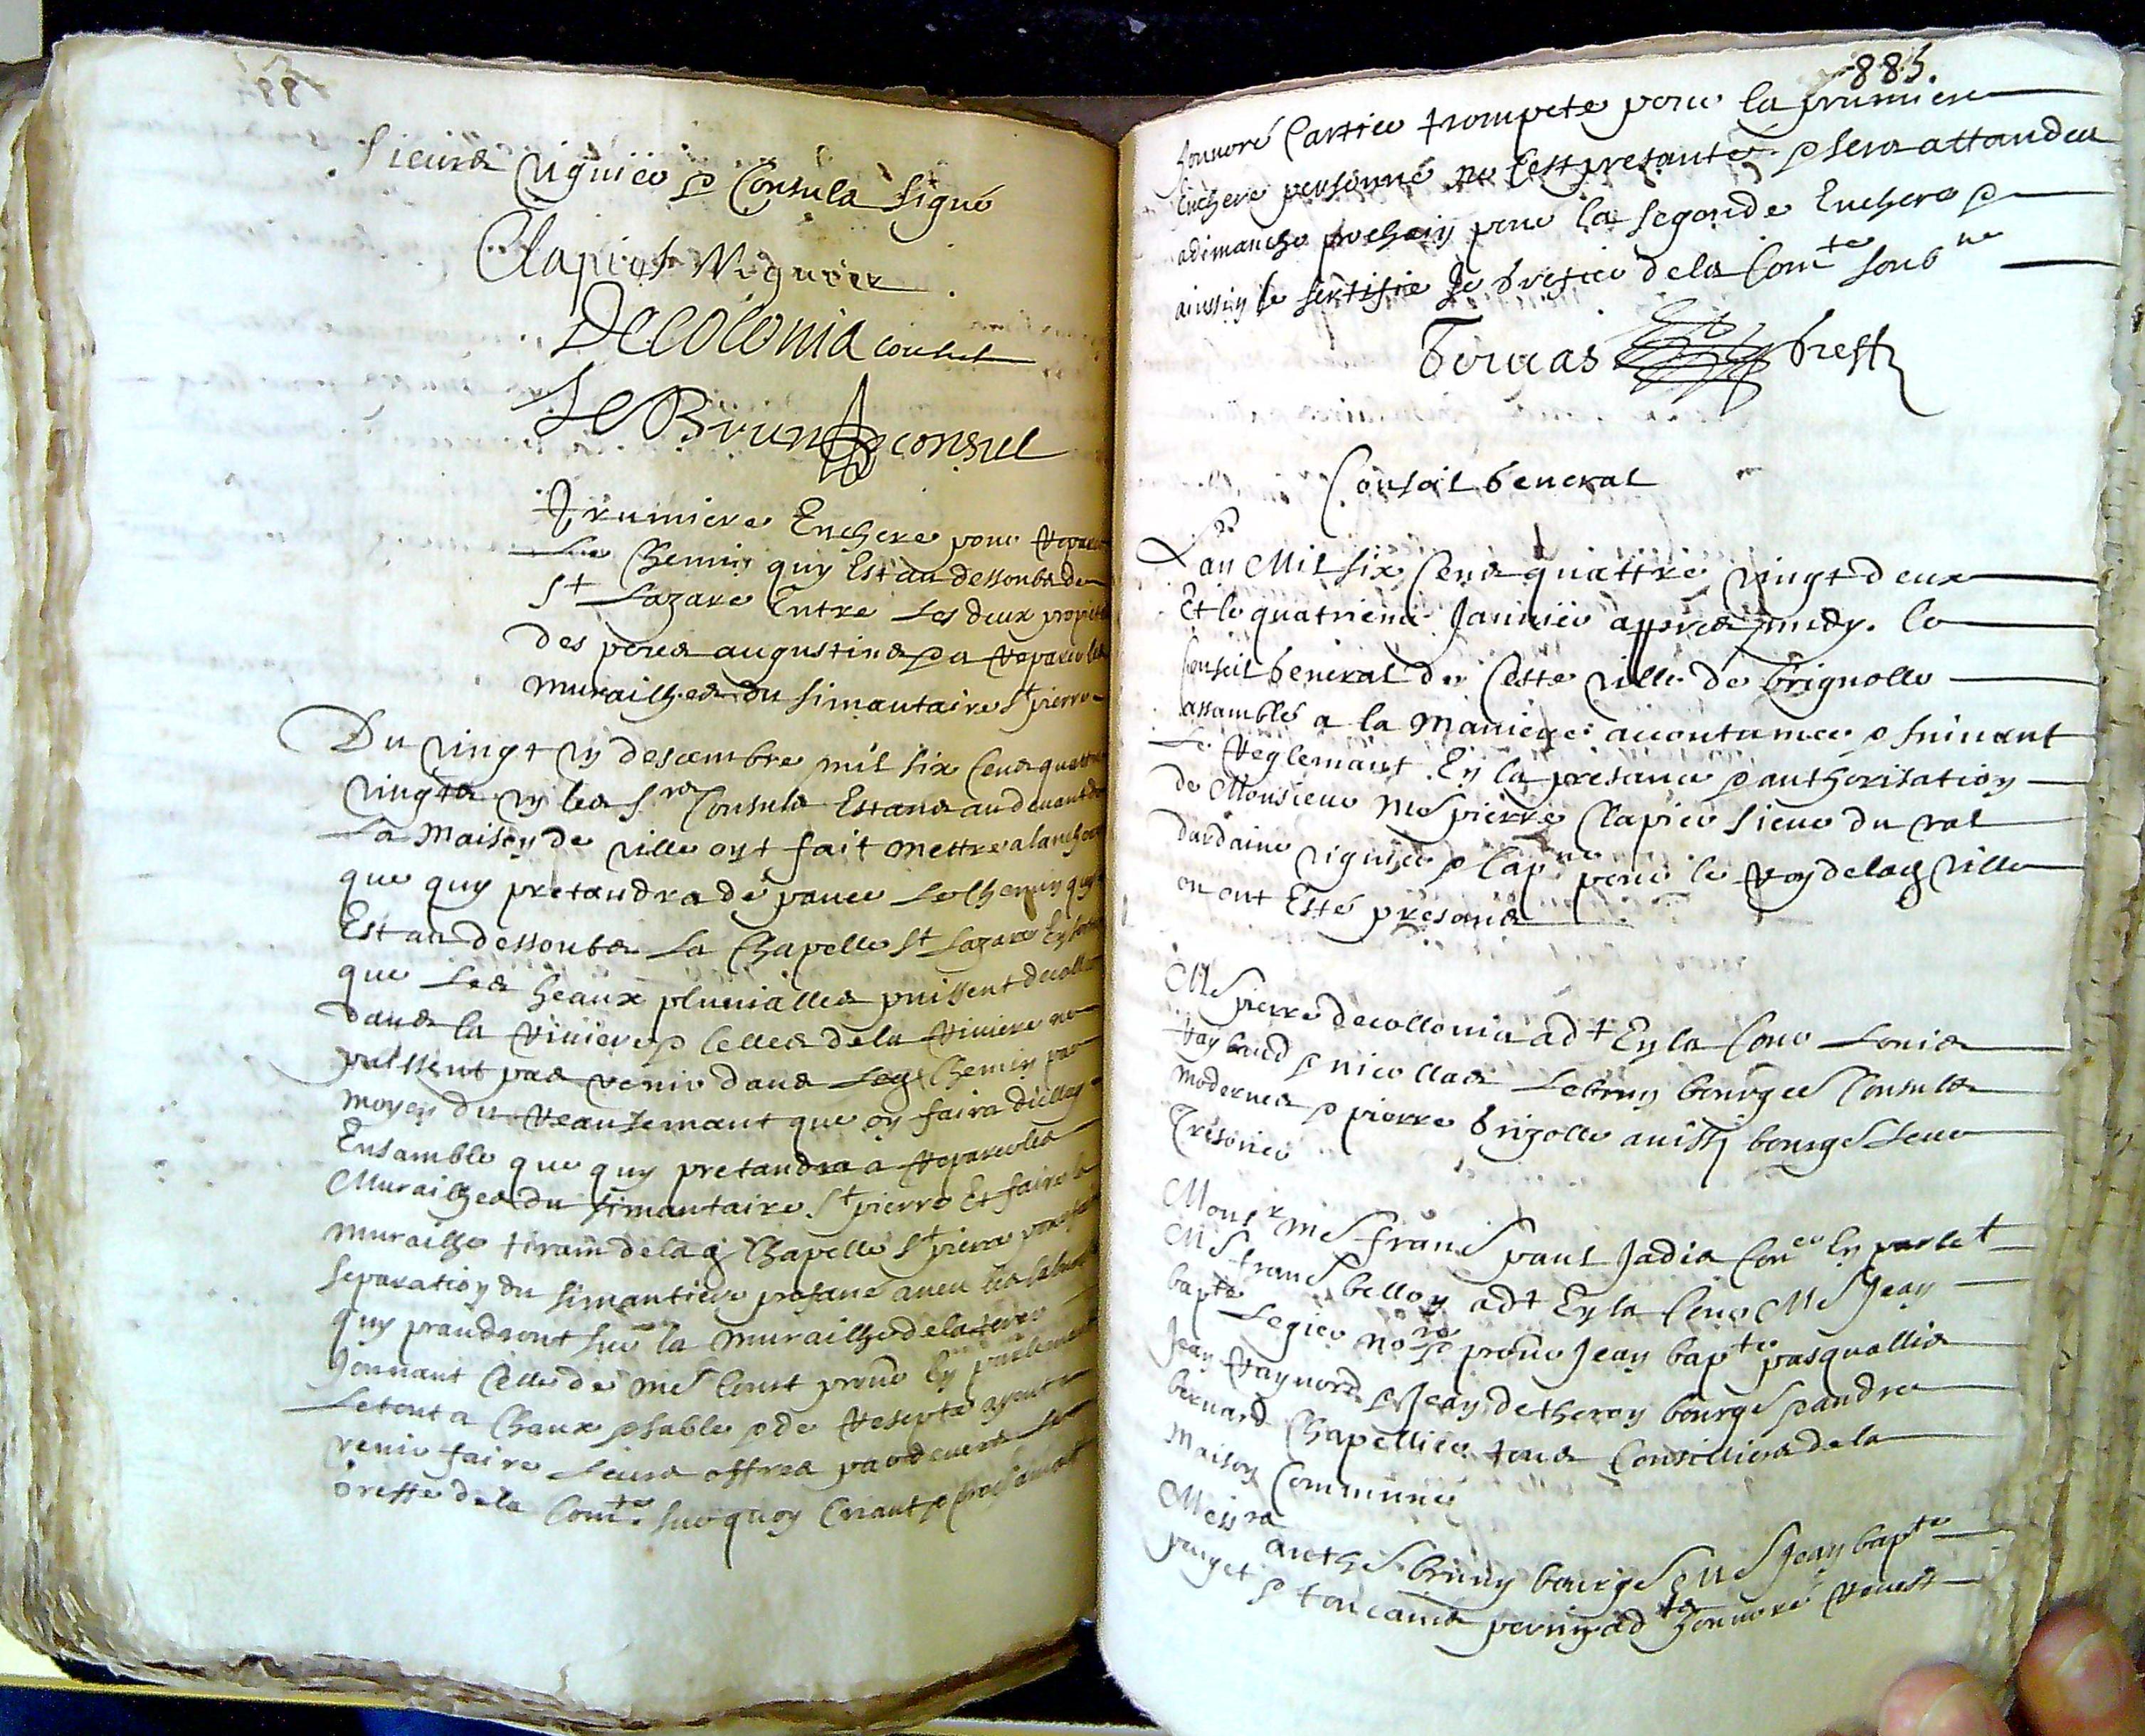 sieurs viguier et consuls signé
Clapiers Viguier
Decolonia consul
Le Brun consul
Prumiere Enchere pour repare
Le Chemin quy Est au dessoubs de
St Lazare Entre Les deux propietes
des peres augustins et a reparer les
murailhes du simantaire St pierre
Du vingt un desçembre mil six cens quattre
vingts un les Srs Consuls Estans au devant de
La Maison de ville ont fait mettre a lanchere
que quy pretandra de paver Le Chemin quy
Est au dessoubs La Chapelle St Lazare En sorte
que Les heaux pluvialles puissent decoller
dans la riviere et celles de la riviere ne
puissent pas venir dans Led Chemin par
moyen du reausemant que on faira dicelluy
Ensamble que quy pretandra a reparer les
Murailhes du simantaire St pierre Et faire la
muraille tirant de lad Chapelle St pierre pour faire
separation du simantiere profane avec
quy prandront sur la muraille de la terre
Joignant celle de me procr En parlement
Le tout a Chaux et sable et de ayent a
venir faire Leurs offres pardevers Le
greffe de la Comte sur quoy Criant et proclamant
885.
honnoré Cartier trompete pour la prumiere
Enchere personne ne cest presanté et sera attandeu
a dimanche prochain pour la segonde Enchere et
ainsin le sertifie Je greffier de la Comte soubne
greff
Conseil General
Lan Mil six Cens quattre vingt deux
Et le quatrieme Janvier appres midy. le
Conseil General de Ceste ville de Brignolle
assamblé a la Maniere accoutumee et suivant
Le Reglemant. En la presance et authorisation
de Monsieur Me pierre Clapier sieur du val
dardaine viguier et Capne pour le Roy de lad ville
ou ont Esté presans
Me pierre decollonia adt En la Cour Louis
Raybaud et nicollas Lebrun bourges Consuls
modernes et pierre Brigolle aussy bourges Leur
Tresorier
Monsr me frans paul Jadis Coner En parlet
Me frans bellon adt En la Cour Me Jean
bapte Legier nore et procur Jean bapte pasquallis
Jean Raynord et Jean detheron bourges et andre
bernard Chapellier tous Conseillers de la
Maison Commune
Messrs anthe brun bourges Me Jean bapte
puget et toucains perrin adts honnore